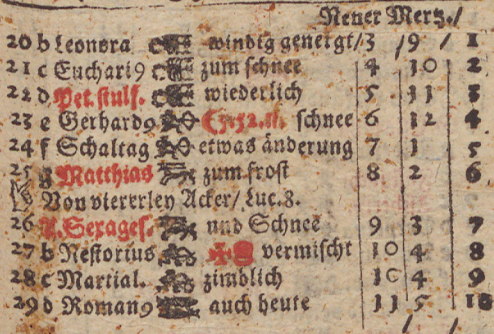 Neuer Mertz./
20 b Leonora windig geneigt/ 3 /9 / 1
21 c Euchari9 zum schnee 4 10 2
22 d Pet. stulf. wiederlich 5 11 3
23 e Gerhard9 schnee 6 12 4
24 f Schaltag etwas änderung 7 1 5
25 g Matthias zum frost 8 2 6
Von viererley Acker/ Luc. 8.
26 A. Sexages. und Schnee 9 3 7
27 b Nestorius vermischt 10 4 8
28 c Martial. zimblich 10 4 9
29 d Roman9 auch heute 11 5 10